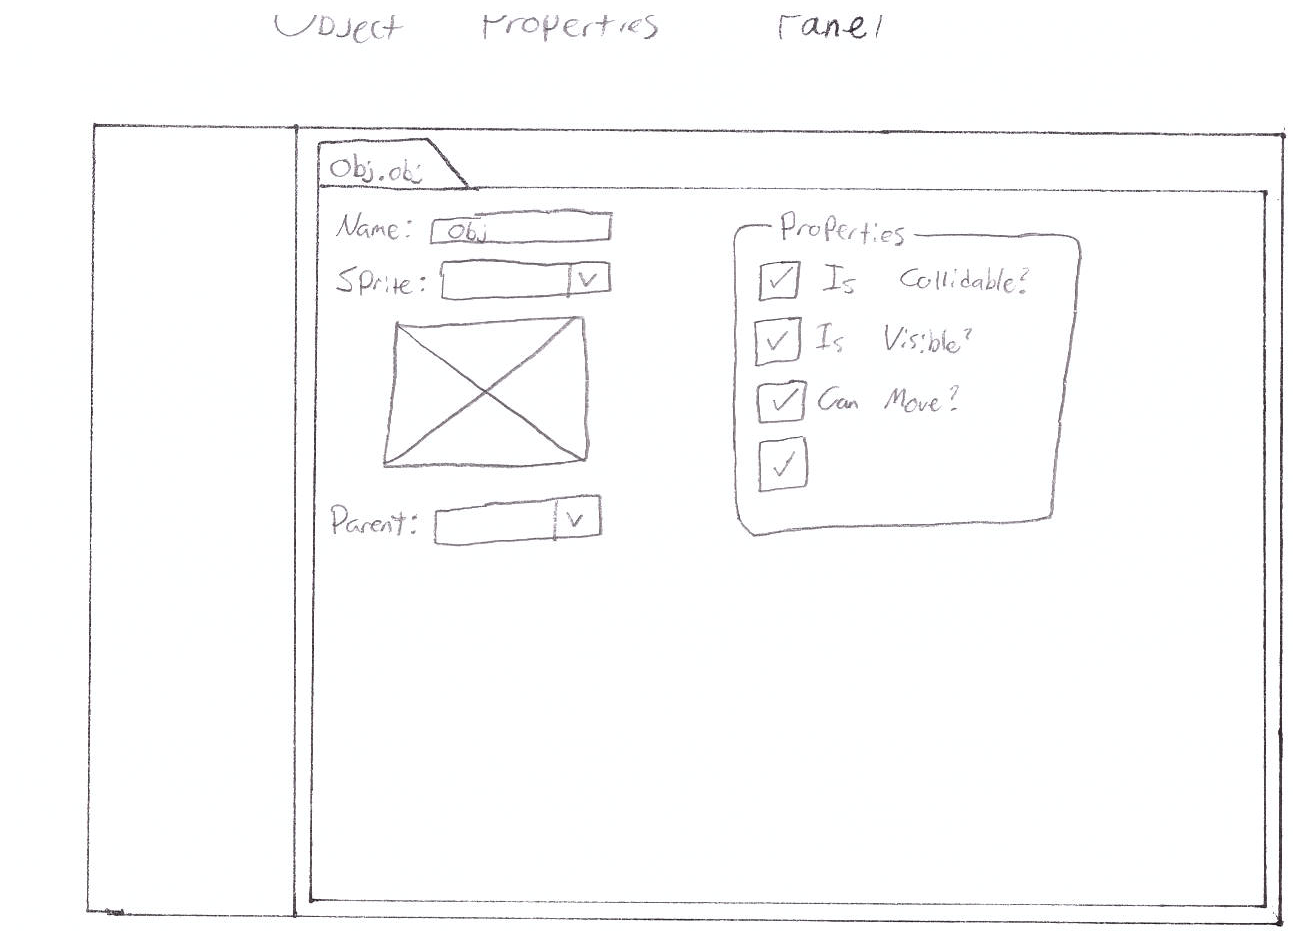 Object Properties Panel
Obj.obj
Name: Obj
Sprite:
Parent:
Properties
Is Collidable?
Is Visible?
Can Move?